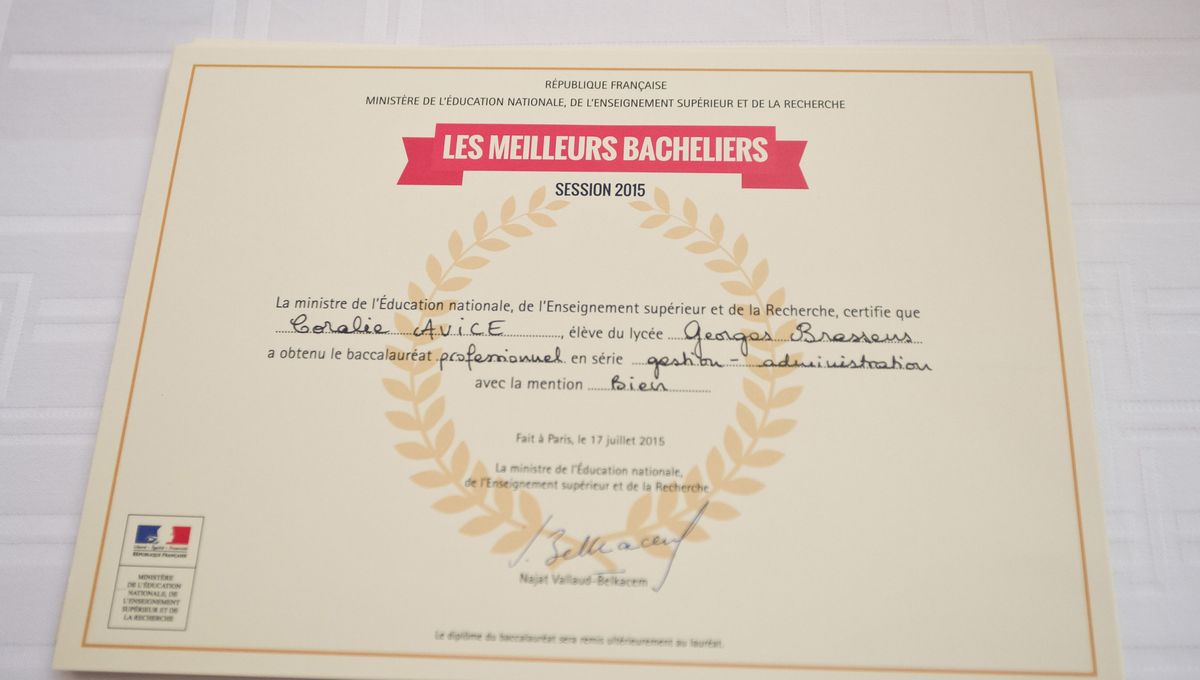 RÉPUBLIQUE FRANÇAISE
MINISTÈRE DE L'ÉDUCATION NATIONALE, DE L'ENSEIGNEMENT SUPÉRIEUR ET DE LA RECHERCHE
LES MEILLEURS BACHELIERS
SESSION 2015
La ministre de l'Éducation nationale, de l'Enseignement supérieur et de la Recherche, certifie que
Coralie AVICE, élève du lycée Georges Brassens
a obtenu le baccalauréat professionnel en série gestion - administration
avec la mention Bien
Fait à Paris, le 17 juillet 2015
La ministre de l'Éducation nationale,
de l'Enseignement supérieur et de la Recherche
Belkacem
Najat Vallaud-Belkacem
Liberté • Égalité • Fraternité
RÉPUBLIQUE FRANÇAISE
MINISTÈRE
DE L'ÉDUCATION
NATIONALE, DE
L'ENSEIGNEMENT
SUPÉRIEUR ET DE
LA RECHERCHE
Le diplôme du baccalauréat sera remis ultérieurement au lauréat.